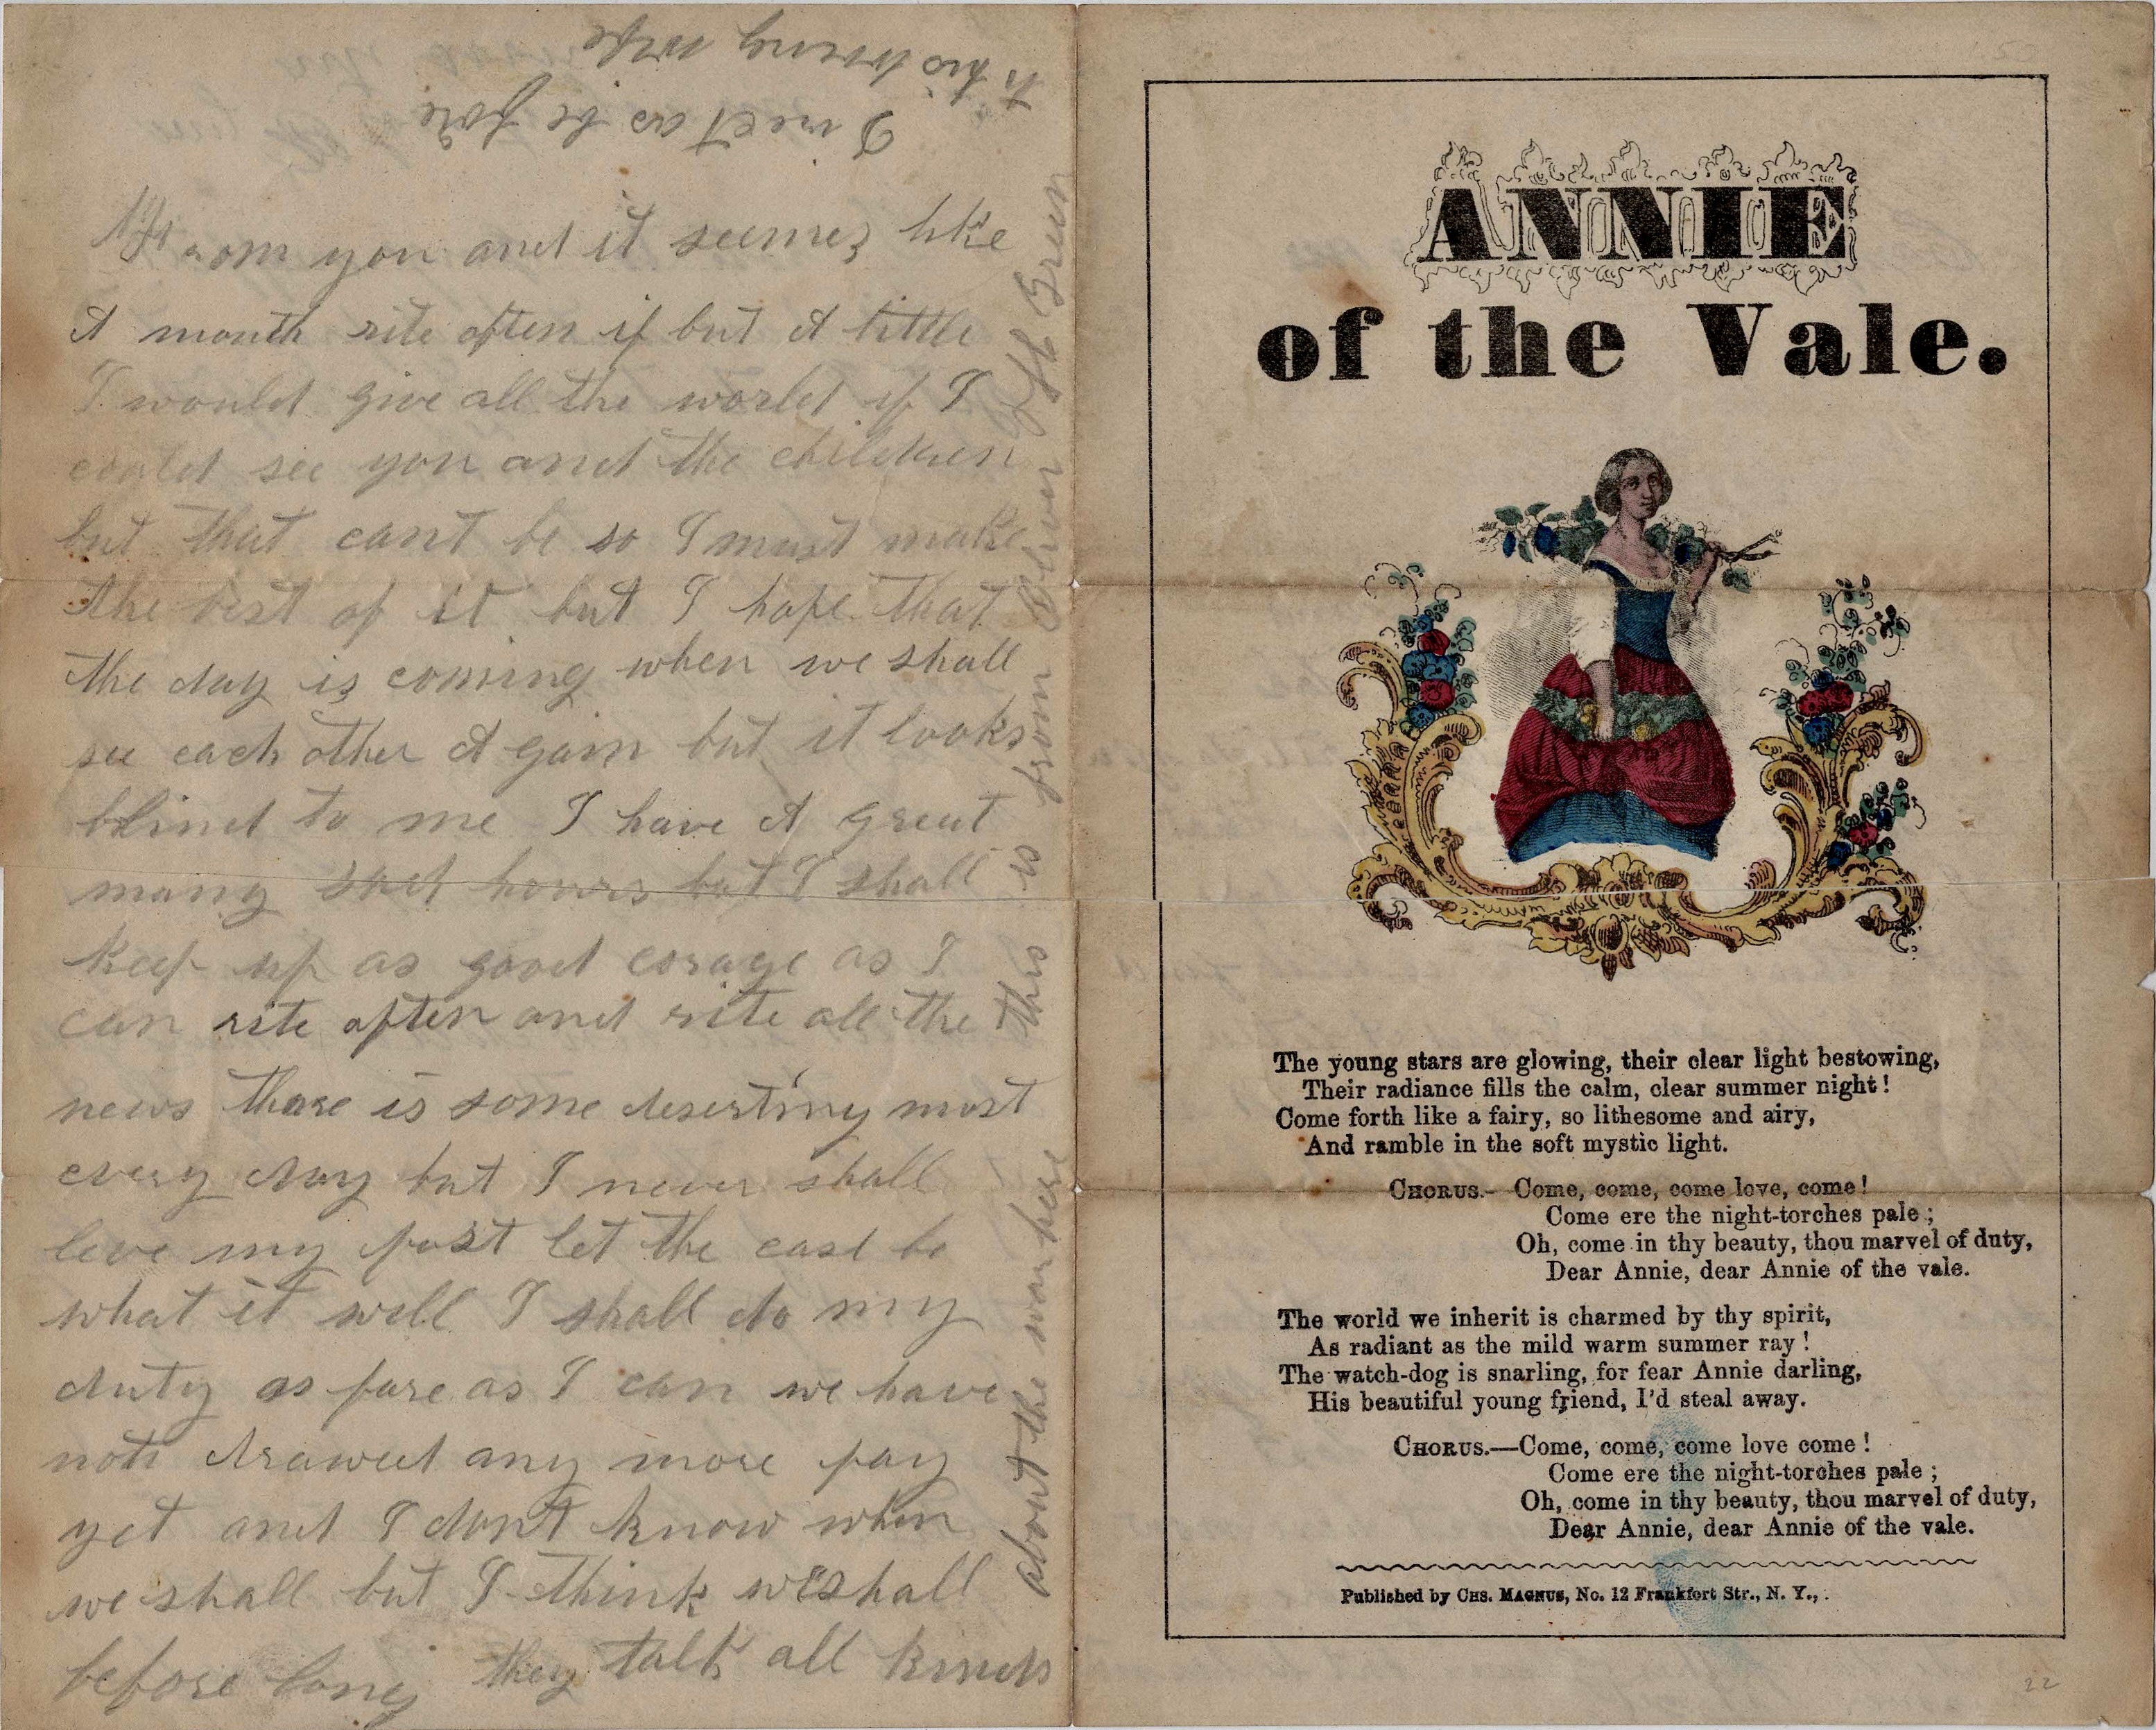 to his loving wife
I rect as be fore
From you and it seemes like
A month rite often if but A little
I would give all the world if I
could see you and the children
but that cant be so I must make
the best of it but I hope that
the day is coming when we shall
see each other A gain but it looks
blind to me I have A great
many sad hours but I shall
keep up as good corage as I
can rite often and rite all the
news thare is some desertiny most
every day but I never shall
leve my post let the case be
what it will I shall do my
duty as fare as I can we have
note drawed any more pay
yet and I dont know when
we shall but I think we shall
before long they talk all kinds
about the war here this is from Oliver Green
ANNIE
of the Vale.
The young stars are glowing, their clear light bestowing,
Their radiance fills the calm, clear summer night!
Come forth like a fairy, so lithesome and airy,
And ramble in the soft mystic light.
CHORUS.- Come, come, come love, come!
Come ere the night-torches pale;
Oh, come in thy beauty, thou marvel of duty,
Dear Annie, dear Annie of the vale.
The world we inherit is charmed by thy spirit,
As radiant as the mild warm summer ray!
The watch-dog is snarling, for fear Annie darling,
His beautiful young friend, I'd steal away.
CHORUS.—Come, come, come love come!
Come ere the night-torches pale;
Oh, come in thy beauty, thou marvel of duty,
Dear Annie, dear Annie of the vale.
Published by CHS. MAGNUS, No. 12 Frankfort Str., N. Y.,
22